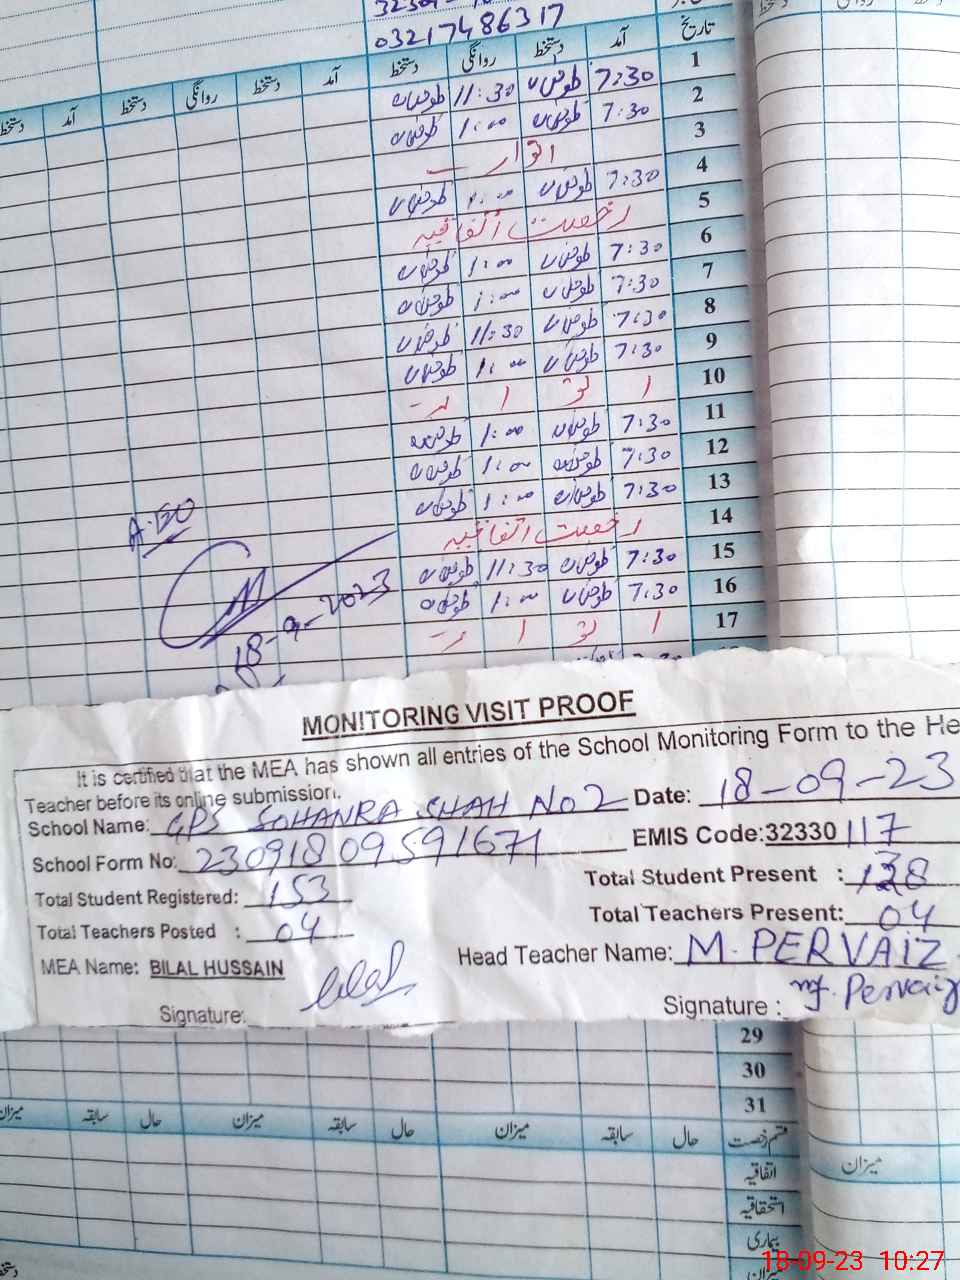 03217486317
تاریخ آمد دستخط روانگی دستخط آمد دستخط روانگی دستخط آمد
1 7:30 11:30
2 7:30 1:00
3 اتوار
4 7:30 1:00
5 رخصت اتفاقیہ
6 7:30 1:00
7 7:30 1:00
8 7:30 11:30
9 7:30 1:00
10 ا تو ا ر
11 7:30 1:00
12 7:30 1:00
13 7:30 1:00
14 رخصت اتفاقیہ
15 7:30 11:30
16 7:30 1:00
17 ا تو ا ر
A.EO
18-9-2023
MONITORING VISIT PROOF
It is certified that the MEA has shown all entries of the School Monitoring Form to the He
Teacher before its online submission.
School Name: GPS SOHANRA SHAH No 2 Date: 18-09-23
School Form No: 23091809591671 EMIS Code:32330 117
Total Student Registered: 153 Total Student Present : 138
Total Teachers Posted : 04 Total Teachers Present: 04
MEA Name: BILAL HUSSAIN Head Teacher Name: M. PERVAIZ
Signature: Bilal Signature : M. Pervaiz
29
30
31
قسم رخصت حال سابقہ میزان حال سابقہ میزان حال سابقہ میزان
اتفاقیہ
استحقاقیہ
بیماری
میزان
18-09-23 10:27